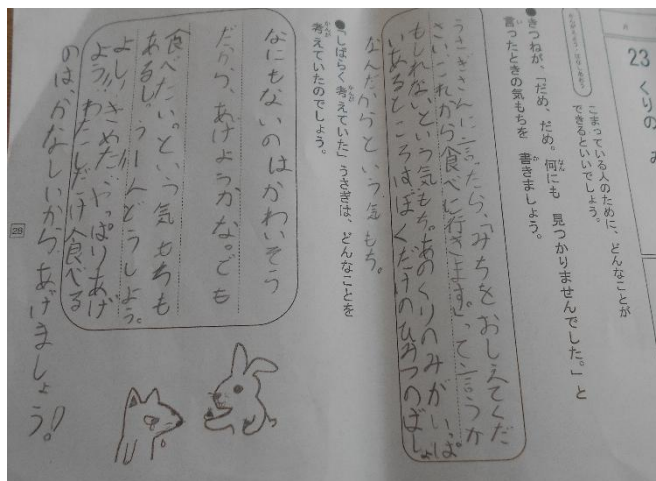 23 くりのみ
こまっている人のために、どんなことが
できるといいでしょう。
●きつねが、「だめ、だめ。何にも 見つかりませんでした。」と
言ったときの気もちを 書きましょう。
うさぎさんに言ったら、「みちをおしえてくだ
さい。これから食べに行きます。」って言うか
もしれないという気もち。あのくりのみがいっぱ
いあるところはぼくだけのひみつのばしょ
なんだからという気もち。
●「しばらく考えていた」うさぎは、どんなことを
考えていたのでしょう。
なにもないのはかわいそう
だから、あげようかな。でも
食べたい。という気もちも
あるし、うーんどうしよう。
よし!きめた!やっぱりあげ
よう!!わたしだけ食べる
のは、かなしいからあげましょう。!
29